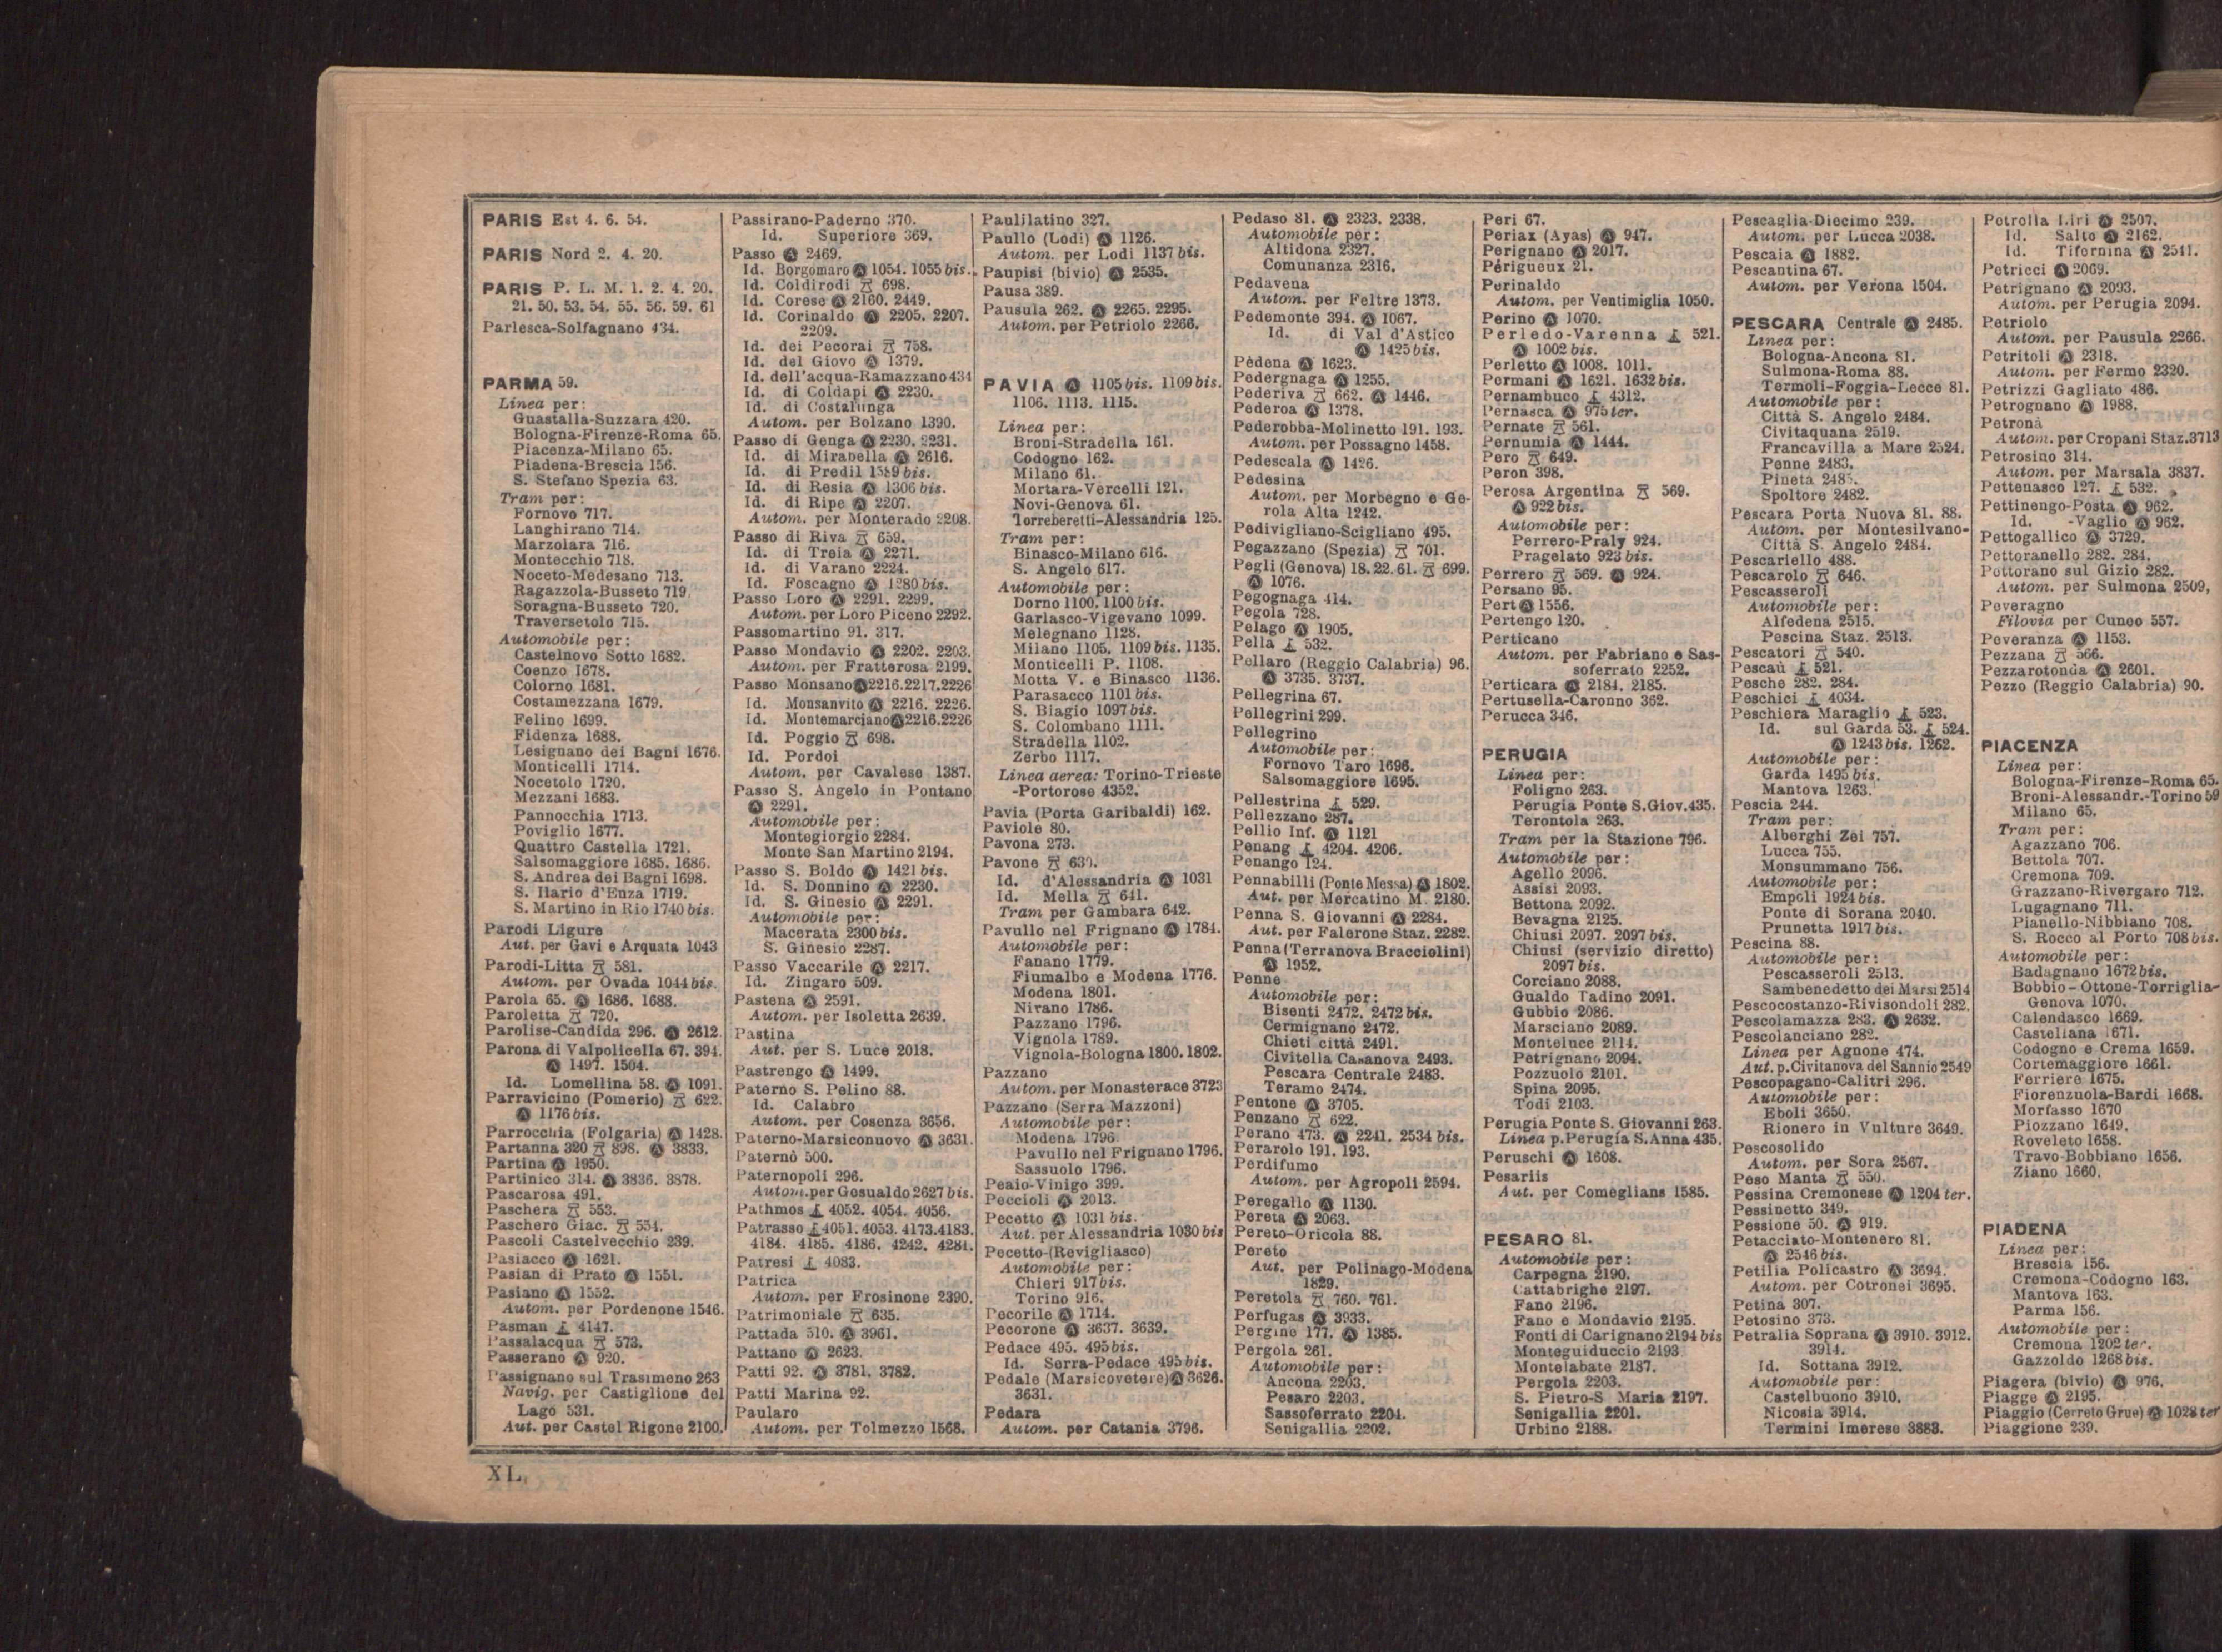 PARIS Est 4. 6. 54.
PARIS Nord 2. 4. 20.
PARIS P. L. M. 1. 2. 4. 20.
21. 50. 53. 54. 55. 56. 59. 61
Parlesca-Solfagnano 434.
PARMA 59.
Linea per:
Guastalla-Suzzara 420.
Bologna-Firenze-Roma 65.
Piacenza-Milano 65.
Piadena-Brescia 156.
S. Stefano Spezia 63.
Tram per:
Fornovo 717.
Langhirano 714.
Marzolara 716.
Montecchio 718.
Noceto-Medesano 713.
Ragazzola-Busseto 719.
Soragna-Busseto 720.
Traversetolo 715.
Automobile per:
Castelnovo Sotto 1682.
Coenzo 1678.
Colorno 1681.
Costamezzana 1679.
Felino 1699.
Fidenza 1688.
Lesignano dei Bagni 1676.
Monticelli 1714.
Nocetolo 1720.
Mezzani 1683.
Pannocchia 1713.
Poviglio 1677.
Quattro Castella 1721.
Salsomaggiore 1685. 1686.
S. Andrea dei Bagni 1698.
S. Ilario d'Enza 1719.
S. Martino in Rio 1740 bis.
Parodi Ligure
Aut. per Gavi e Arquata 1043
Parodi-Litta 581.
Autom. per Ovada 1044 bis.
Parola 65. Ⓐ 1686. 1688.
Paroletta 720.
Parolise-Candida 296. Ⓐ 2612.
Parona di Valpolicella 67. 394.
Ⓐ 1497. 1504.
Id. Lomellina 58. Ⓐ 1091.
Parravicino (Pomerio) 622.
Ⓐ 1176 bis.
Parrocchia (Folgaria) Ⓐ 1428.
Partanna 320 898. Ⓐ 3833.
Partina Ⓐ 1950.
Partinico 314. Ⓐ 3836. 3878.
Pascarosa 491.
Paschera 553.
Paschero Giac. 554.
Pascoli Castelvecchio 239.
Pasiacco Ⓐ 1621.
Pasian di Prato Ⓐ 1551.
Pasiano Ⓐ 1552.
Autom. per Pordenone 1546.
Pasman 4147.
Passalacqua 573.
Passerano Ⓐ 920.
Passignano sul Trasimeno 263
Navig. per Castiglione del
Lago 531.
Aut. per Castel Rigone 2100.
Passirano-Paderno 370.
Id. Superiore 369.
Passo Ⓐ 2469.
Id. Borgomaro Ⓐ 1054. 1055 bis.
Id. Coldirodi 698.
Id. Corese Ⓐ 2160. 2449.
Id. Corinaldo Ⓐ 2205. 2207.
2209.
Id. dei Pecorai 758.
Id. del Giovo Ⓐ 1379.
Id. dell'acqua-Ramazzano 434
Id. di Coldapi Ⓐ 2230.
Id. di Costalunga
Autom. per Bolzano 1390.
Passo di Genga Ⓐ 2230. 2231.
Id. di Mirabella Ⓐ 2616.
Id. di Predil 1589 bis.
Id. di Resia Ⓐ 1306 bis.
Id. di Ripe Ⓐ 2207.
Autom. per Monterado 2208.
Passo di Riva 659.
Id. di Treia Ⓐ 2271.
Id. di Varano 2224.
Id. Foscagno Ⓐ 1280 bis.
Passo Loro Ⓐ 2291. 2299.
Autom. per Loro Piceno 2292.
Passomartino 91. 317.
Passo Mondavio Ⓐ 2202. 2203.
Autom. per Fratterosa 2199.
Passo Monsano Ⓐ 2216. 2217. 2226
Id. Monsanvito Ⓐ 2216. 2226.
Id. Montemarciano Ⓐ 2216. 2226
Id. Poggio 698.
Id. Pordoi
Autom. per Cavalese 1387.
Passo S. Angelo in Pontano
Ⓐ 2291.
Automobile per:
Montegiorgio 2284.
Monte San Martino 2194.
Passo S. Boldo Ⓐ 1421 bis.
Id. S. Donnino Ⓐ 2230.
Id. S. Ginesio Ⓐ 2291.
Automobile per:
Macerata 2300 bis.
S. Ginesio 2287.
Passo Vaccarile Ⓐ 2217.
Id. Zingaro 509.
Pastena Ⓐ 2591.
Autom. per Isoletta 2639.
Pastina
Aut. per S. Luce 2018.
Pastrengo Ⓐ 1499.
Paterno S. Pelino 88.
Id. Calabro
Autom. per Cosenza 3656.
Paterno-Marsiconuovo Ⓐ 3631.
Paternò 500.
Paternopoli 296.
Autom. per Gesualdo 2627 bis.
Pathmos 4052. 4054. 4056.
Patrasso 4051. 4053. 4173. 4183.
4184. 4185. 4186. 4242. 4281.
Patresi 4083.
Patrica
Autom. per Frosinone 2390.
Patrimoniale 635.
Pattada 510. Ⓐ 3961.
Pattano Ⓐ 2623.
Patti 92. Ⓐ 3781. 3782.
Patti Marina 92.
Paularo
Autom. per Tolmezzo 1568.
Paulilatino 327.
Paullo (Lodi) Ⓐ 1126.
Autom. per Lodi 1137 bis.
Paupisi (bivio) Ⓐ 2535.
Pausa 389.
Pausula 262. Ⓐ 2265. 2295.
Autom. per Petriolo 2266.
PAVIA Ⓐ 1105 bis. 1109 bis.
1106. 1113. 1115.
Linea per:
Broni-Stradella 161.
Codogno 162.
Milano 61.
Mortara-Vercelli 121.
Novi-Genova 61.
Torreberetti-Alessandria 125.
Tram per:
Binasco-Milano 616.
S. Angelo 617.
Automobile per:
Dorno 1100. 1100 bis.
Garlasco-Vigevano 1099.
Melegnano 1128.
Milano 1105. 1109 bis. 1135.
Monticelli P. 1108.
Motta V. e Binasco 1136.
Parasacco 1101 bis.
S. Biagio 1097 bis.
S. Colombano 1111.
Stradella 1102.
Zerbo 1117.
Linea aerea: Torino-Trieste
-Portorose 4352.
Pavia (Porta Garibaldi) 162.
Paviole 80.
Pavona 273.
Pavone 630.
Id. d'Alessandria Ⓐ 1031
Id. Mella 641.
Tram per Gambara 642.
Pavullo nel Frignano Ⓐ 1784.
Automobile per:
Fanano 1779.
Fiumalbo e Modena 1776.
Modena 1801.
Nirano 1786.
Pazzano 1796.
Vignola 1789.
Vignola-Bologna 1800. 1802.
Pazzano
Autom. per Monasterace 3723
Pazzano (Serra Mazzoni)
Automobile per:
Modena 1796.
Pavullo nel Frignano 1796.
Sassuolo 1796.
Peaio-Vinigo 399.
Peccioli Ⓐ 2013.
Pecetto Ⓐ 1031 bis.
Aut. per Alessandria 1030 bis
Pecetto-(Revigliasco)
Automobile per:
Chieri 917 bis.
Torino 916.
Pecorile Ⓐ 1714.
Pecorone Ⓐ 3637. 3639.
Pedace 495. 495 bis.
Id. Serra-Pedace 495 bis.
Pedale (Marsicovetere) Ⓐ 3626.
3631.
Pedara
Autom. per Catania 3796.
Pedaso 81. Ⓐ 2323. 2338.
Automobile per:
Altidona 2327.
Comunanza 2316.
Pedavena
Autom. per Feltre 1373.
Pedemonte 394. Ⓐ 1067.
Id. di Val d'Astico
Ⓐ 1425 bis.
Pèdena Ⓐ 1623.
Pedergnaga Ⓐ 1255.
Pederiva 662. Ⓐ 1446.
Pederoa Ⓐ 1378.
Pederobba-Molinetto 191. 193.
Autom. per Possagno 1458.
Pedescala Ⓐ 1426.
Pedesina
Autom. per Morbegno e Ge-
rola Alta 1242.
Pedivigliano-Scigliano 495.
Pegazzano (Spezia) 701.
Pegli (Genova) 18. 22. 61. 699.
Ⓐ 1076.
Pegognaga 414.
Pegola 728.
Pelago Ⓐ 1905.
Pella 532.
Pellaro (Reggio Calabria) 96.
Ⓐ 3735. 3737.
Pellegrina 67.
Pellegrini 299.
Pellegrino
Automobile per:
Fornovo Taro 1696.
Salsomaggiore 1695.
Pellestrina 529.
Pellezzano 287.
Pellio Inf. Ⓐ 1121
Penang 4204. 4206.
Penango 124.
Pennabilli (Ponte Messa) Ⓐ 1802.
Aut. per Mercatino M. 2180.
Penna S. Giovanni Ⓐ 2284.
Aut. per Falerone Staz. 2282.
Penna (Terranova Bracciolini)
Ⓐ 1952.
Penne
Automobile per:
Bisenti 2472. 2472 bis.
Cermignano 2472.
Chieti città 2491.
Civitella Casanova 2493.
Pescara Centrale 2483.
Teramo 2474.
Pentone Ⓐ 3705.
Penzano 622.
Perano 473. Ⓐ 2241. 2534 bis.
Perarolo 191. 193.
Perdifumo
Autom. per Agropoli 2594.
Peregallo Ⓐ 1130.
Pereta Ⓐ 2063.
Pereto-Oricola 88.
Pereto
Aut. per Polinago-Modena
1829.
Peretola 760. 761.
Perfugas Ⓐ 3933.
Pergine 177. Ⓐ 1385.
Pergola 261.
Automobile per:
Ancona 2203.
Pesaro 2203.
Sassoferrato 2204.
Senigallia 2202.
Peri 67.
Periax (Ayas) Ⓐ 947.
Perignano Ⓐ 2017.
Périgueux 21.
Perinaldo
Autom. per Ventimiglia 1050.
Perino Ⓐ 1070.
Perledo-Varenna 521.
Ⓐ 1002 bis.
Perletto Ⓐ 1008. 1011.
Permani Ⓐ 1621. 1632 bis.
Pernambuco 4312.
Pernasca Ⓐ 975 ter.
Pernate 561.
Pernumia Ⓐ 1444.
Pero 649.
Peron 398.
Perosa Argentina 569.
Ⓐ 922 bis.
Automobile per:
Perrero-Praly 924.
Pragelato 923 bis.
Perrero 569. Ⓐ 924.
Persano 95.
Pert Ⓐ 1556.
Pertengo 120.
Perticano
Autom. per Fabriano e Sas-
soferrato 2252.
Perticara Ⓐ 2184. 2185.
Pertusella-Caronno 362.
Perucca 346.
PERUGIA
Linea per:
Foligno 263.
Perugia Ponte S. Giov. 435.
Terontola 263.
Tram per la Stazione 796.
Automobile per:
Agello 2096.
Assisi 2093.
Bettona 2092.
Bevagna 2125.
Chiusi 2097. 2097 bis.
Chiusi (servizio diretto)
2097 bis.
Corciano 2088.
Gualdo Tadino 2091.
Gubbio 2086.
Marsciano 2089.
Monteluce 2114.
Petrignano 2094.
Pozzuolo 2101.
Spina 2095.
Todi 2103.
Perugia Ponte S. Giovanni 263.
Linea p. Perugia S. Anna 435.
Peruschi Ⓐ 1608.
Pesariis
Aut. per Comeglians 1585.
PESARO 81.
Automobile per:
Carpegna 2190.
Cattabrighe 2197.
Fano 2196.
Fano e Mondavio 2195.
Fonti di Carignano 2194 bis
Monteguiduccio 2193
Montelabate 2187.
Pergola 2203.
S. Pietro-S Maria 2197.
Senigallia 2201.
Urbino 2188.
Pescaglia-Diecimo 239.
Autom. per Lucca 2038.
Pescaia Ⓐ 1882.
Pescantina 67.
Autom. per Verona 1504.
PESCARA Centrale Ⓐ 2485.
Linea per:
Bologna-Ancona 81.
Sulmona-Roma 88.
Termoli-Foggia-Lecce 81.
Automobile per:
Città S. Angelo 2484.
Civitaquana 2519.
Francavilla a Mare 2524.
Penne 2483.
Pineta 2485.
Spoltore 2482.
Pescara Porta Nuova 81. 88.
Autom. per Montesilvano-
Città S. Angelo 2484.
Pescariello 488.
Pescarolo 646.
Pescasseroli
Automobile per:
Alfedena 2515.
Pescina Staz. 2513.
Pescatori 540.
Pescaù 521.
Pesche 282. 284.
Peschici 4034.
Peschiera Maraglio 523.
Id. sul Garda 53. 524.
Ⓐ 1243 bis. 1262.
Automobile per:
Garda 1495 bis.
Mantova 1263.
Pescia 244.
Tram per:
Alberghi Zei 757.
Lucca 755.
Monsummano 756.
Automobile per:
Empoli 1924 bis.
Ponte di Sorana 2040.
Prunetta 1917 bis.
Pescina 88.
Automobile per:
Pescasseroli 2513.
Sambenedetto dei Marsi 2514
Pescocostanzo-Rivisondoli 282.
Pescolamazza 283. Ⓐ 2632.
Pescolanciano 282.
Linea per Agnone 474.
Aut. p. Civitanova del Sannio 2549
Pescopagano-Calitri 296.
Automobile per:
Eboli 3650.
Rionero in Vulture 3649.
Pescosolido
Autom. per Sora 2567.
Peso Manta 550.
Pessina Cremonese Ⓐ 1204 ter.
Pessinetto 349.
Pessione 50. Ⓐ 919.
Petacciato-Montenero 81.
Ⓐ 2546 bis.
Petilia Policastro Ⓐ 3694.
Autom. per Cotronei 3695.
Petina 307.
Petosino 373.
Petralia Soprana Ⓐ 3910. 3912.
3914.
Id. Sottana 3912.
Automobile per:
Castelbuono 3910.
Nicosia 3914.
Termini Imerese 3883.
Petrella Liri Ⓐ 2507.
Id. Salto Ⓐ 2162.
Id. Tifernina Ⓐ 2541.
Petricci Ⓐ 2069.
Petrignano Ⓐ 2093.
Autom. per Perugia 2094.
Petriolo
Autom. per Pausula 2266.
Petritoli Ⓐ 2318.
Autom. per Fermo 2320.
Petrizzi Gagliato 486.
Petrognano Ⓐ 1988.
Petronà
Autom. per Cropani Staz. 3713
Petrosino 314.
Autom. per Marsala 3837.
Pettenasco 127. 532.
Pettinengo-Posta Ⓐ 962.
Id. -Vaglio Ⓐ 962.
Pettogallico Ⓐ 3729.
Pettoranello 282. 284.
Pettorano sul Gizio 282.
Autom. per Sulmona 2509,
Peveragno
Filovia per Cuneo 557.
Peveranza Ⓐ 1153.
Pezzana 566.
Pezzarotonda Ⓐ 2601.
Pezzo (Reggio Calabria) 90.
PIACENZA
Linea per:
Bologna-Firenze-Roma 65.
Broni-Alessandr.-Torino 59
Milano 65.
Tram per:
Agazzano 706.
Bettola 707.
Cremona 709.
Grazzano-Rivergaro 712.
Lugagnano 711.
Pianello-Nibbiano 708.
S. Rocco al Porto 708 bis.
Automobile per:
Badagnano 1672 bis.
Bobbio-Ottone-Torriglia-
Genova 1070.
Calendasco 1669.
Casteliana 1671.
Codogno e Crema 1659.
Cortemaggiore 1661.
Ferriere 1675.
Fiorenzuola-Bardi 1668.
Morfasso 1670
Piozzano 1649.
Roveleto 1658.
Travo-Bobbiano 1656.
Ziano 1660.
PIADENA
Linea per:
Brescia 156.
Cremona-Codogno 163.
Mantova 163.
Parma 156.
Automobile per:
Cremona 1202 ter.
Gazzoldo 1268 bis.
Piagera (bivio) Ⓐ 976.
Piagge Ⓐ 2195.
Piaggio (Cerreto Grue) Ⓐ 1028 ter
Piaggione 239.
XL